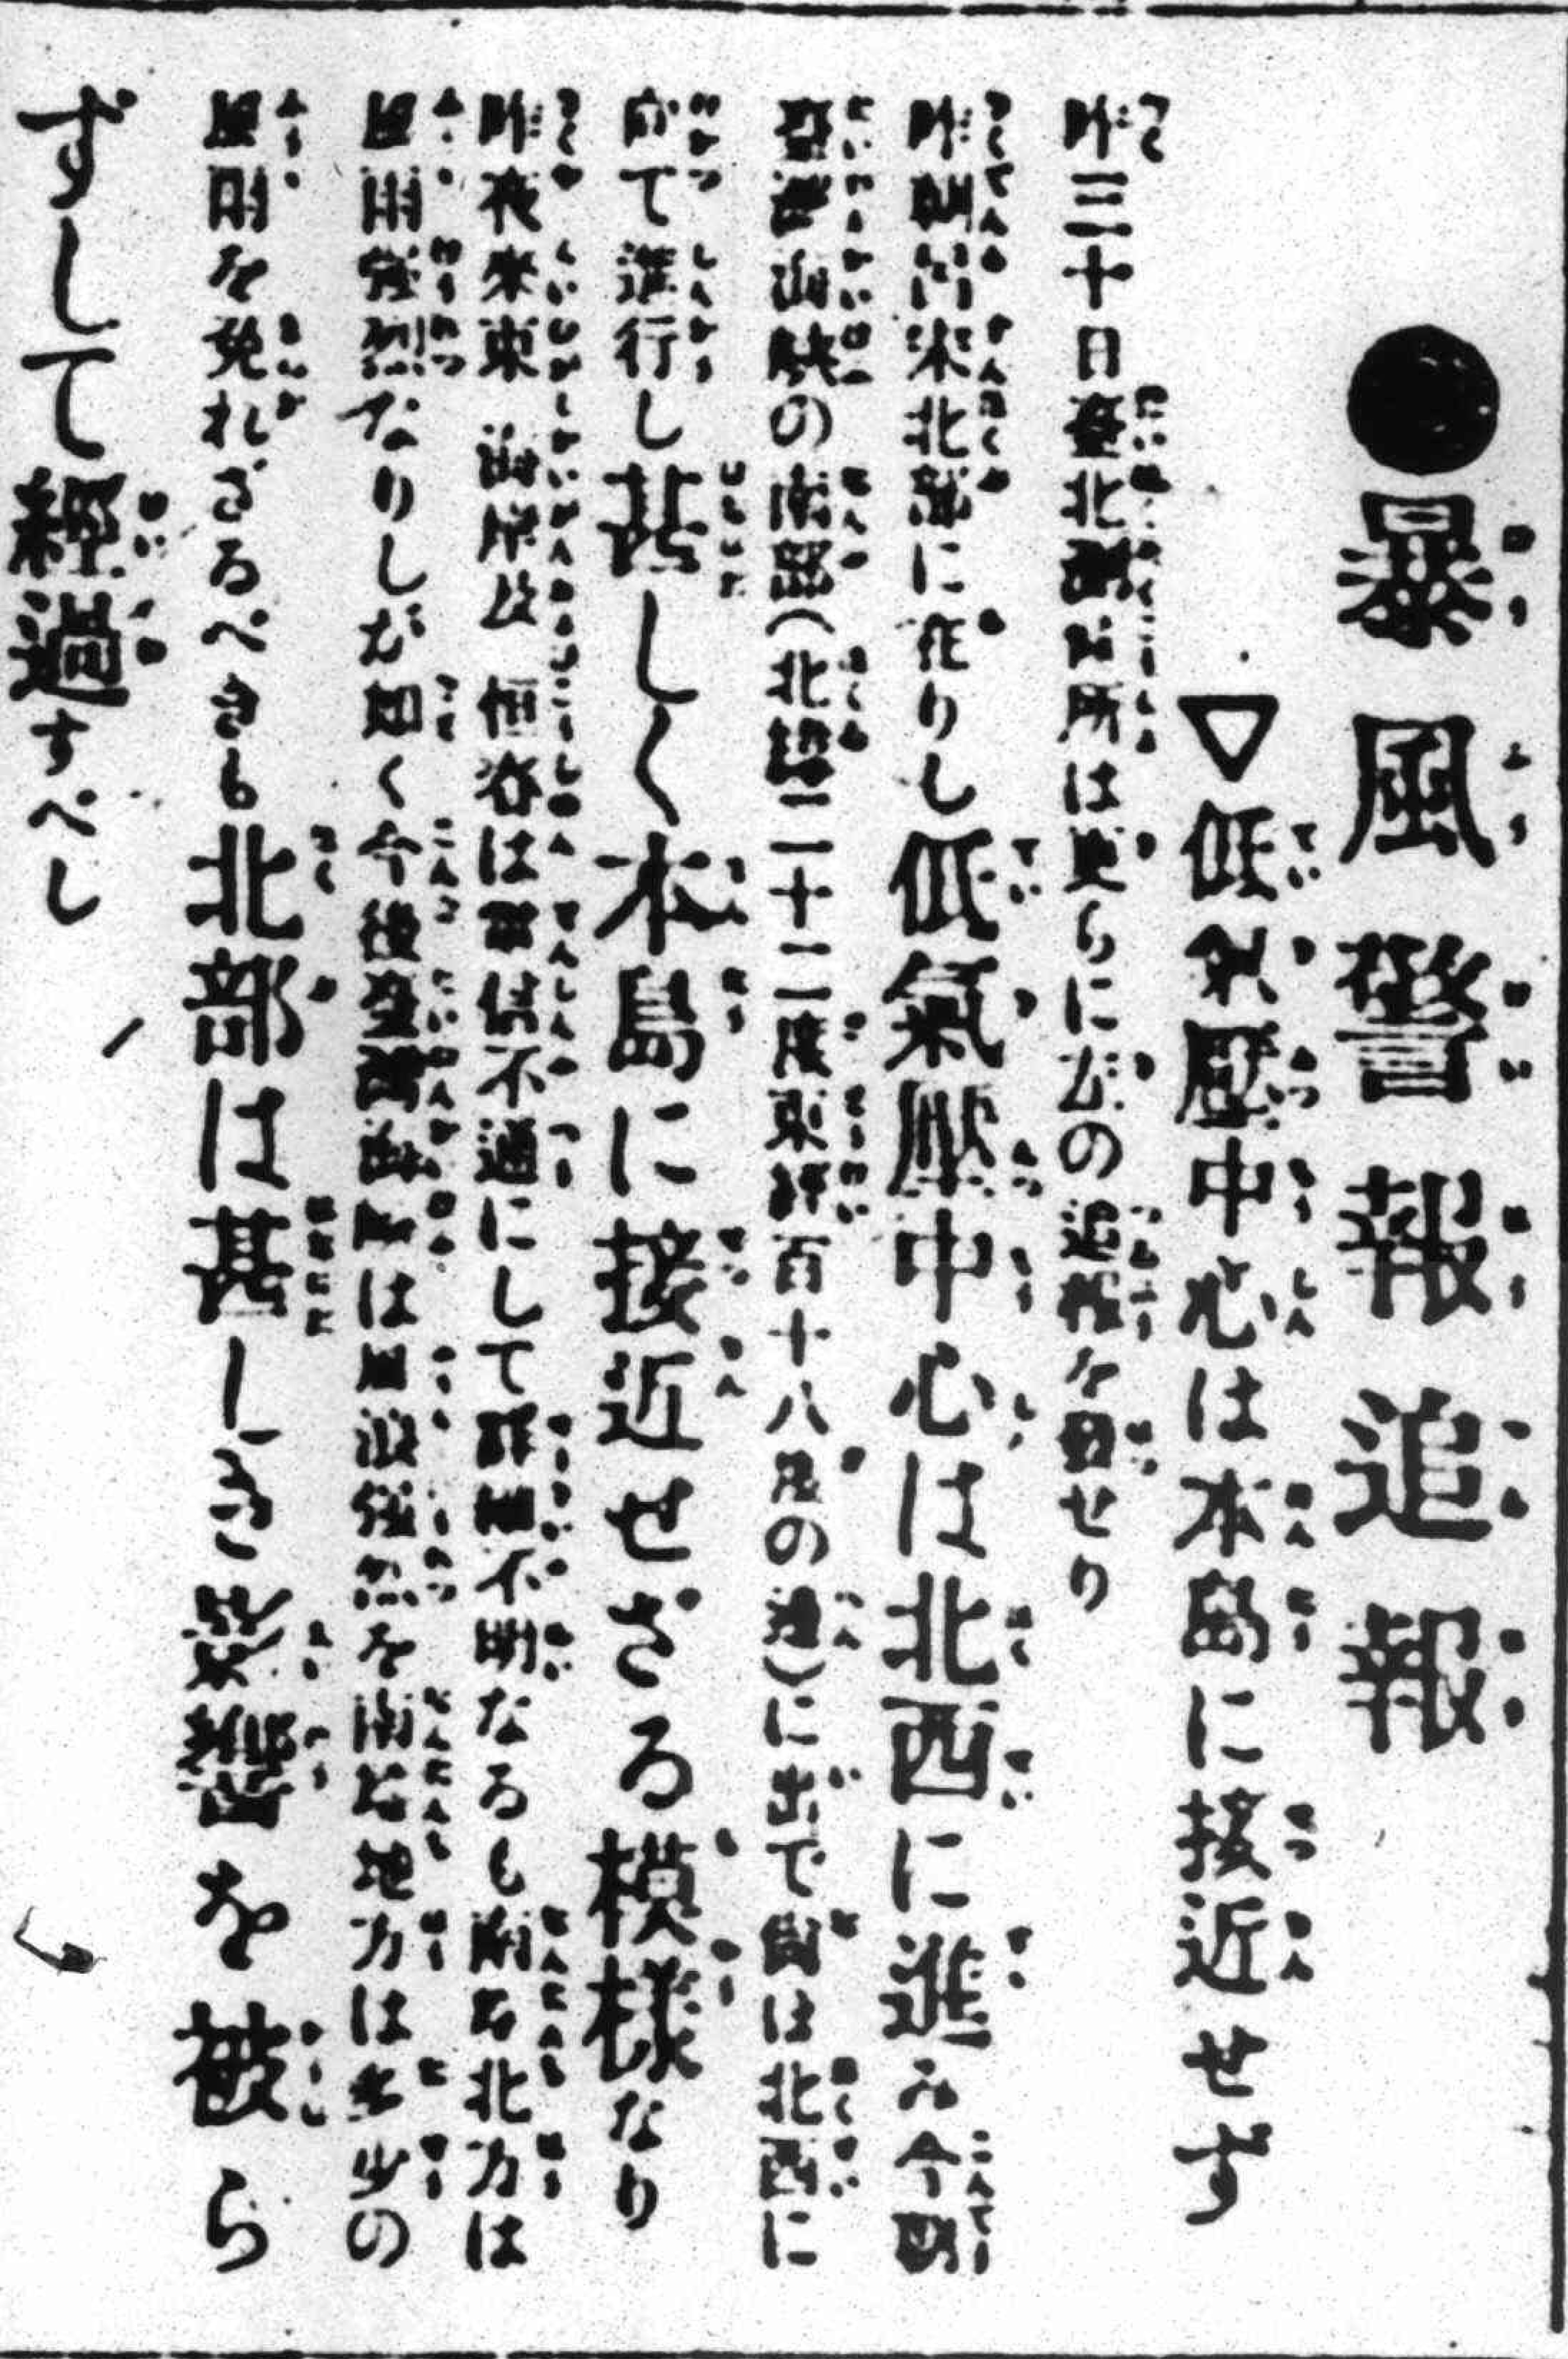 ●暴風警報追報
▽低氣壓中心は本島に接近せず
昨三十日臺北測候所は更らに左の追報を發せり
昨朝呂宋北部に在りし低氣壓中心は北西に進み今朝
臺灣海峽の南部(北緯二十二度東經百十八度の邊)に出で尙は北西に
向て進行し甚しく本島に接近せざる模樣なり
昨夜來東海岸及恒春は電信不通にして詳細不明なるも南及北方は
風雨强烈なりしが如く今後臺灣海峽は風浪强烈を南部地方は多少の
風雨を免れざるべきも北部は甚しき影響を被ら
ずして經過すべし